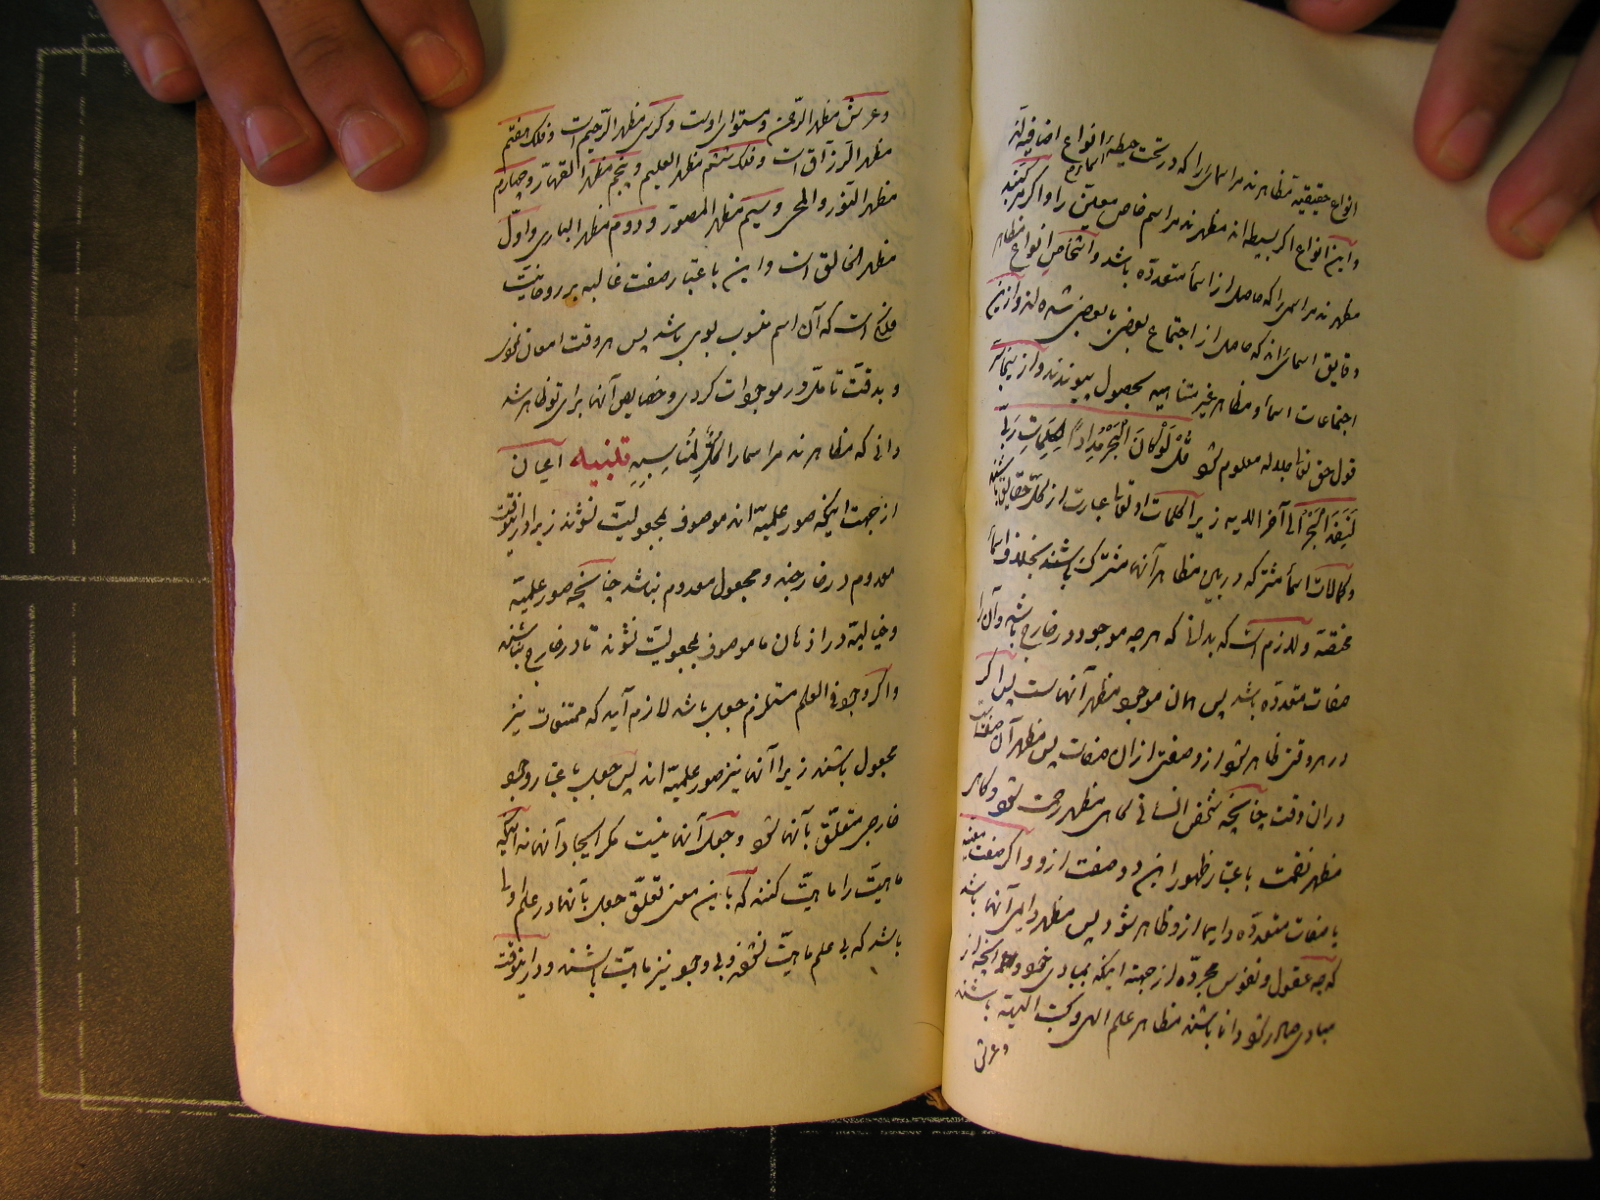 انواع حقیقیه مظاهرند مر اسمای را که در تحت حیطهٔ انواع اضافیه‌اند
و این انواع اگر بسیطه‌اند مظهرند مر اسم خاص معین را و اگر مرکبند
مظهرند مر اسمی را که حاصل از اسمأ متعدده باشد و اشخاص انواع مظاهر
دقایق اسمای‌اند که حاصل از اجتماع بعضی با بعضی شده‌اند و از این
اجتماعات اسمأ و مظاهر غیر متناهیه بحصول پیوندند و از ینجا سر
قول حق تعا جلاله معلوم شو قُلْ لَوْ کَانَ الْبَحْرُ مِدَادًا لِکَلِمَاتِ رَبِّی
لَنَفِدَ الْبَحْرُ الی آخر الایه زیرا کلمات او تعا عبارت از کل حقایق باشند
و کمالات اسمأ مشترکه در بین مظاهر آنها مشترک باشند بخلاف اسمأ
مختصه و لازم است که بدانی که هر چه موجود در خارج باشد و آن را
صفات متعدده باشد پس همان موجو مظهر آنهاست پس اگر
در هر وقتی ظاهر شو ازو صفتی از ان صفات پس مظهر آن صفتست
در ان وقت چنانچه شخص انسانی کاهی مظهر رحمت شو و کاهی
مظهر نقمت باعتبار ظهور این دو صفت ازو و اگر صفت معینه
یا صفات متعدده دایما ازو ظاهر شود پس مظهر دایمی آنها باشد
که چه عقول و نفوس مجرده از جهت اینکه بمبادی خو و آنچه از
مبادی صادر شو دانا باشند مظاهر علم الهی و کتب الهیه باشند
و عرش
و عرش مظهر الرحمن و مستوای اوست و کرسی مظهر الرحیم است و فلک هفتم
مظهر الرزاق است و فلک ششم مظهر العلیم و پنجم مظهر القهار و چهارم
مظهر النور و المحی و سیم مظهر المصور و دووم مظهر الباری و اول
مظهر الخالق است و این باعتبار صفت غالبه بر روحانیت
فلک است که آن اسم منسوب بوی باشد پس هر وقت امعان نمودی
و بدقت تامل در موجوات کردی و خصایص آنها برای تو ظاهر شد
دانی که مظاهرند مر اسما را الکل لمناسبه تنبیه اعیان
از جهت اینکه صور علمیه‌اند موصوف بمجعولیت نشوند زیرا در اینوقت
معدوم در خارجند و مجعول معدوم نباشد چنانچه صور علمیه
و خیالیه در اذهان ما موصوف بمجعولیت نشوند تا در خارج نباشند
و اگر وجو فی العلم مستلزم جعل باشد لازم آید که ممتنعات نیز
مجعول باشند زیرا آنها نیز صور علمیه‌اند پس جعل باعتبار وجو
خارجی متعلق بآنها شو و جعل آنها نیست مگر ایجاد آنها نه اینکه
ماهیت را ماهیت کنند که باین معنی تعلق جعل بآنها در علم اولا
باشد که بی علم ماهیت نشوند و بی وجو نیز ماهیت باشند و در اینوقت